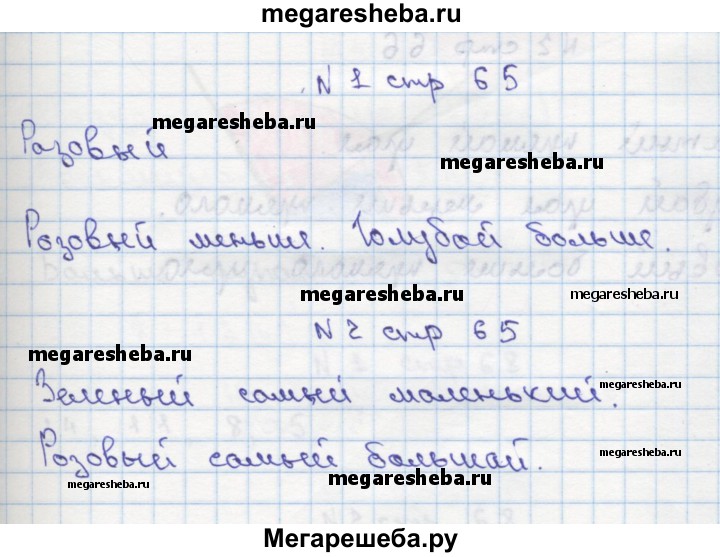 megaresheba.ru
N 1 стр 65
megaresheba.ru
Розовый
megaresheba.ru
Розовый меньше. Голубой больше.
megaresheba.ru
megaresheba.ru
N 2 стр 65
megaresheba.ru
megaresheba.ru
Зеленый самый маленький.
Розовый самый большай.
megaresheba.ru
megaresheba.ru
megaresheba.ru
Мегарешеба.ру